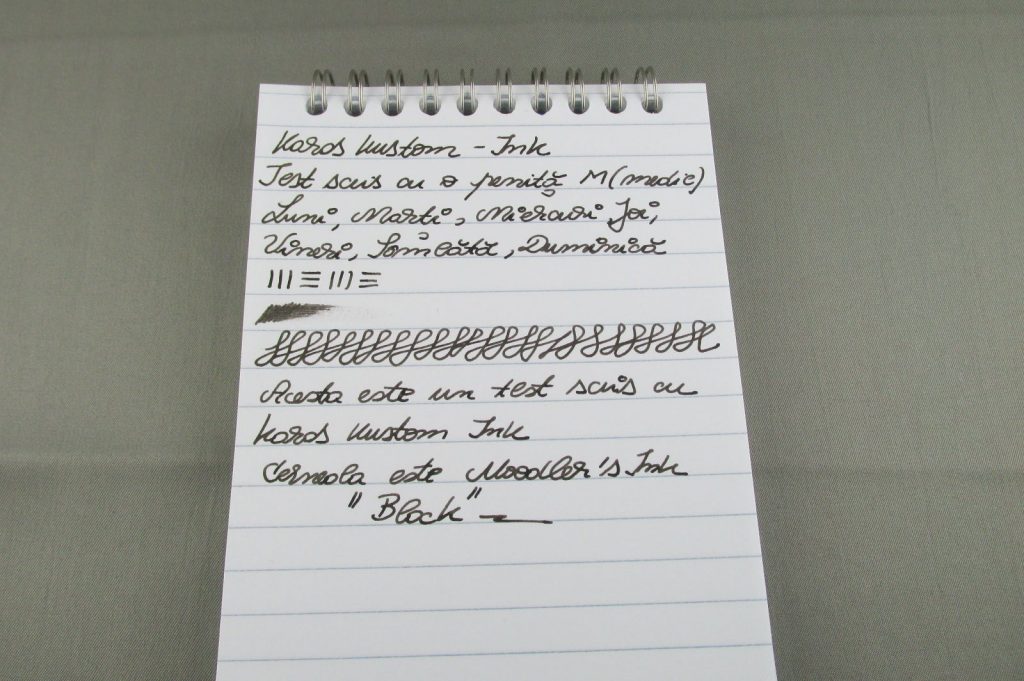 Karas Kustom - Ink
Test scris cu o peniță M (medie)
Luni, Marti, Miercuri, Joi,
Vineri, Sâmbătă, Duminică
Acesta este un test scris cu
Karas Kustom Ink
Cerneala este Noodler's Ink
"Black"